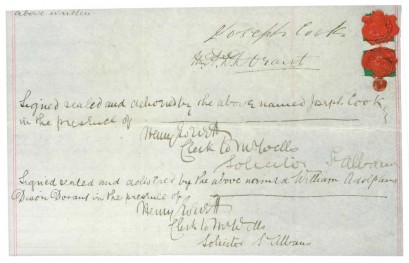 above written
Joseph Cook
Signed sealed and delivered by the above named Joseph Cook
in the presence of
Henry
Clerk to Mr Wells
Solicitor St Albans
Signed sealed and delivered by the above named William
Dixon in the presence of
Henry
Clerk to Mr Wells
Solicitor St Albans